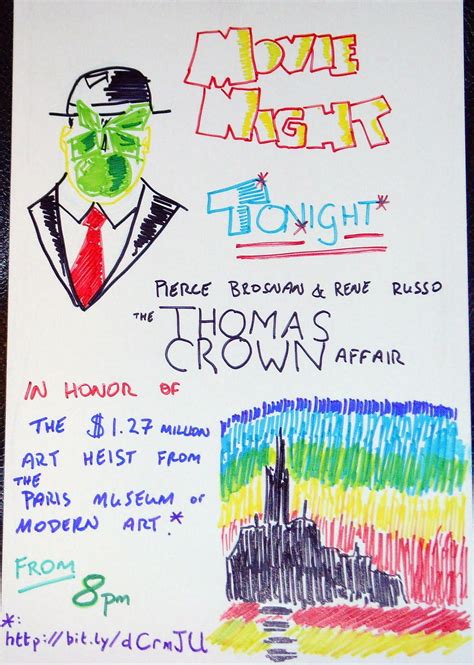 MOVIE
NIGHT
TONIGHT*
PIERCE BROSNAN & RENE RUSSO
THE THOMAS
CROWN AFFAIR
IN HONOR OF
THE $1.27 MILLION
ART HEIST FROM
THE
PARIS MUSEUM OF
MODERN ART.*
FROM
8pm
*:
http://bit.ly/dCrmJU